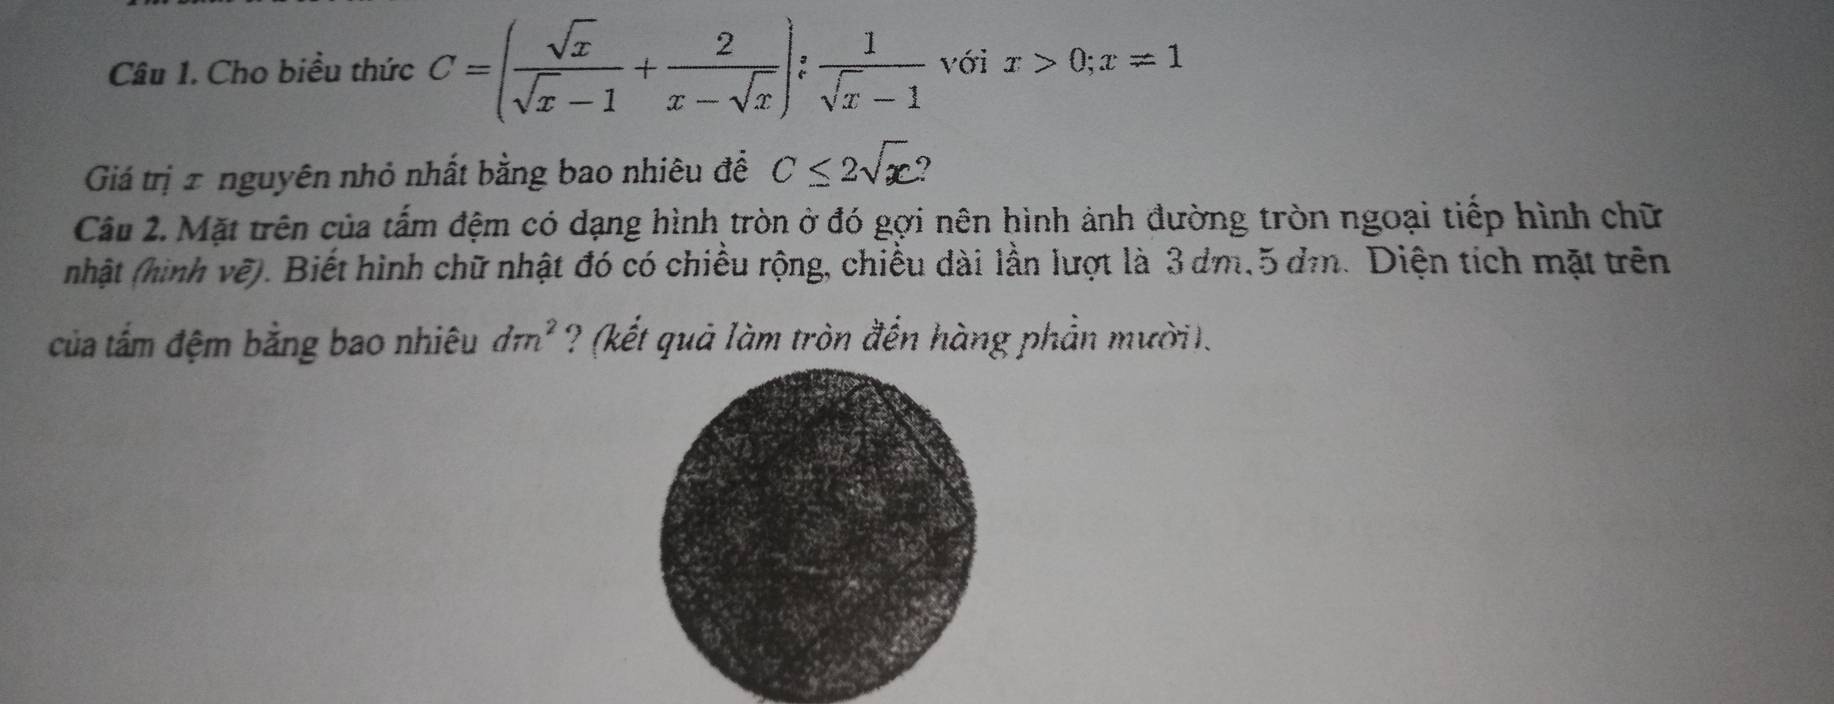 Câu 1. Cho biểu thức C = (√x/(√x − 1) + 2/(x − √x)) : 1/(√x − 1) với x > 0; x ≠ 1
Giá trị x nguyên nhỏ nhất bằng bao nhiêu để C ≤ 2√x?
Câu 2. Mặt trên của tấm đệm có dạng hình tròn ở đó gợi nên hình ảnh đường tròn ngoại tiếp hình chữ
nhật (hình vẽ). Biết hình chữ nhật đó có chiều rộng, chiều dài lần lượt là 3 dm, 5 dm. Diện tích mặt trên
của tấm đệm bằng bao nhiêu dm² ? (kết quả làm tròn đến hàng phần mười).